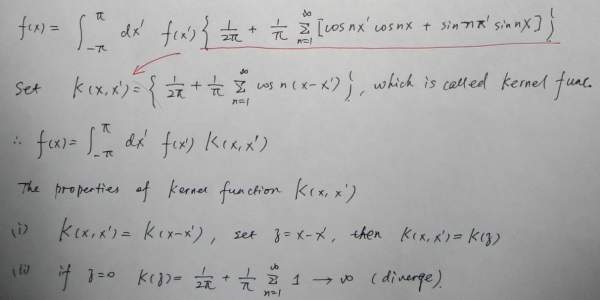 f(x) = ∫_{-π}^{π} dx' f(x') { 1/2π + 1/π Σ_{n=1}^{∞} [cos nx' cos nx + sin nx' sin nx] }
Set K(x,x') = { 1/2π + 1/π Σ_{n=1}^{∞} cos n(x-x') }, which is called kernel func.
∴ f(x) = ∫_{-π}^{π} dx' f(x') K(x,x')
The properties of kernel function K(x,x')
(i) K(x,x') = K(x-x'), set z = x-x', then K(x,x') = K(z)
(ii) if z=0 K(z) = 1/2π + 1/π Σ_{n=1}^{∞} 1 → ∞ (diverge).